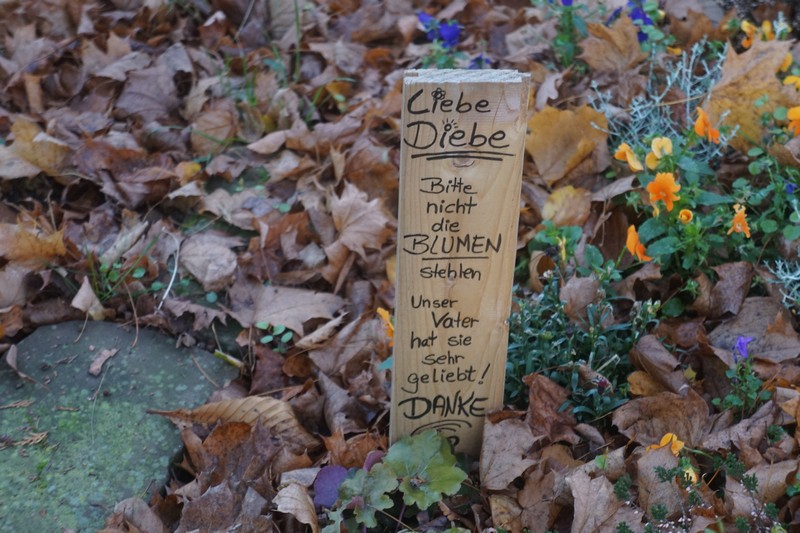 Liebe
Diebe
Bitte
nicht
die
BLUMEN
stehlen
Unser
Vater
hat sie
sehr
geliebt!
DANKE